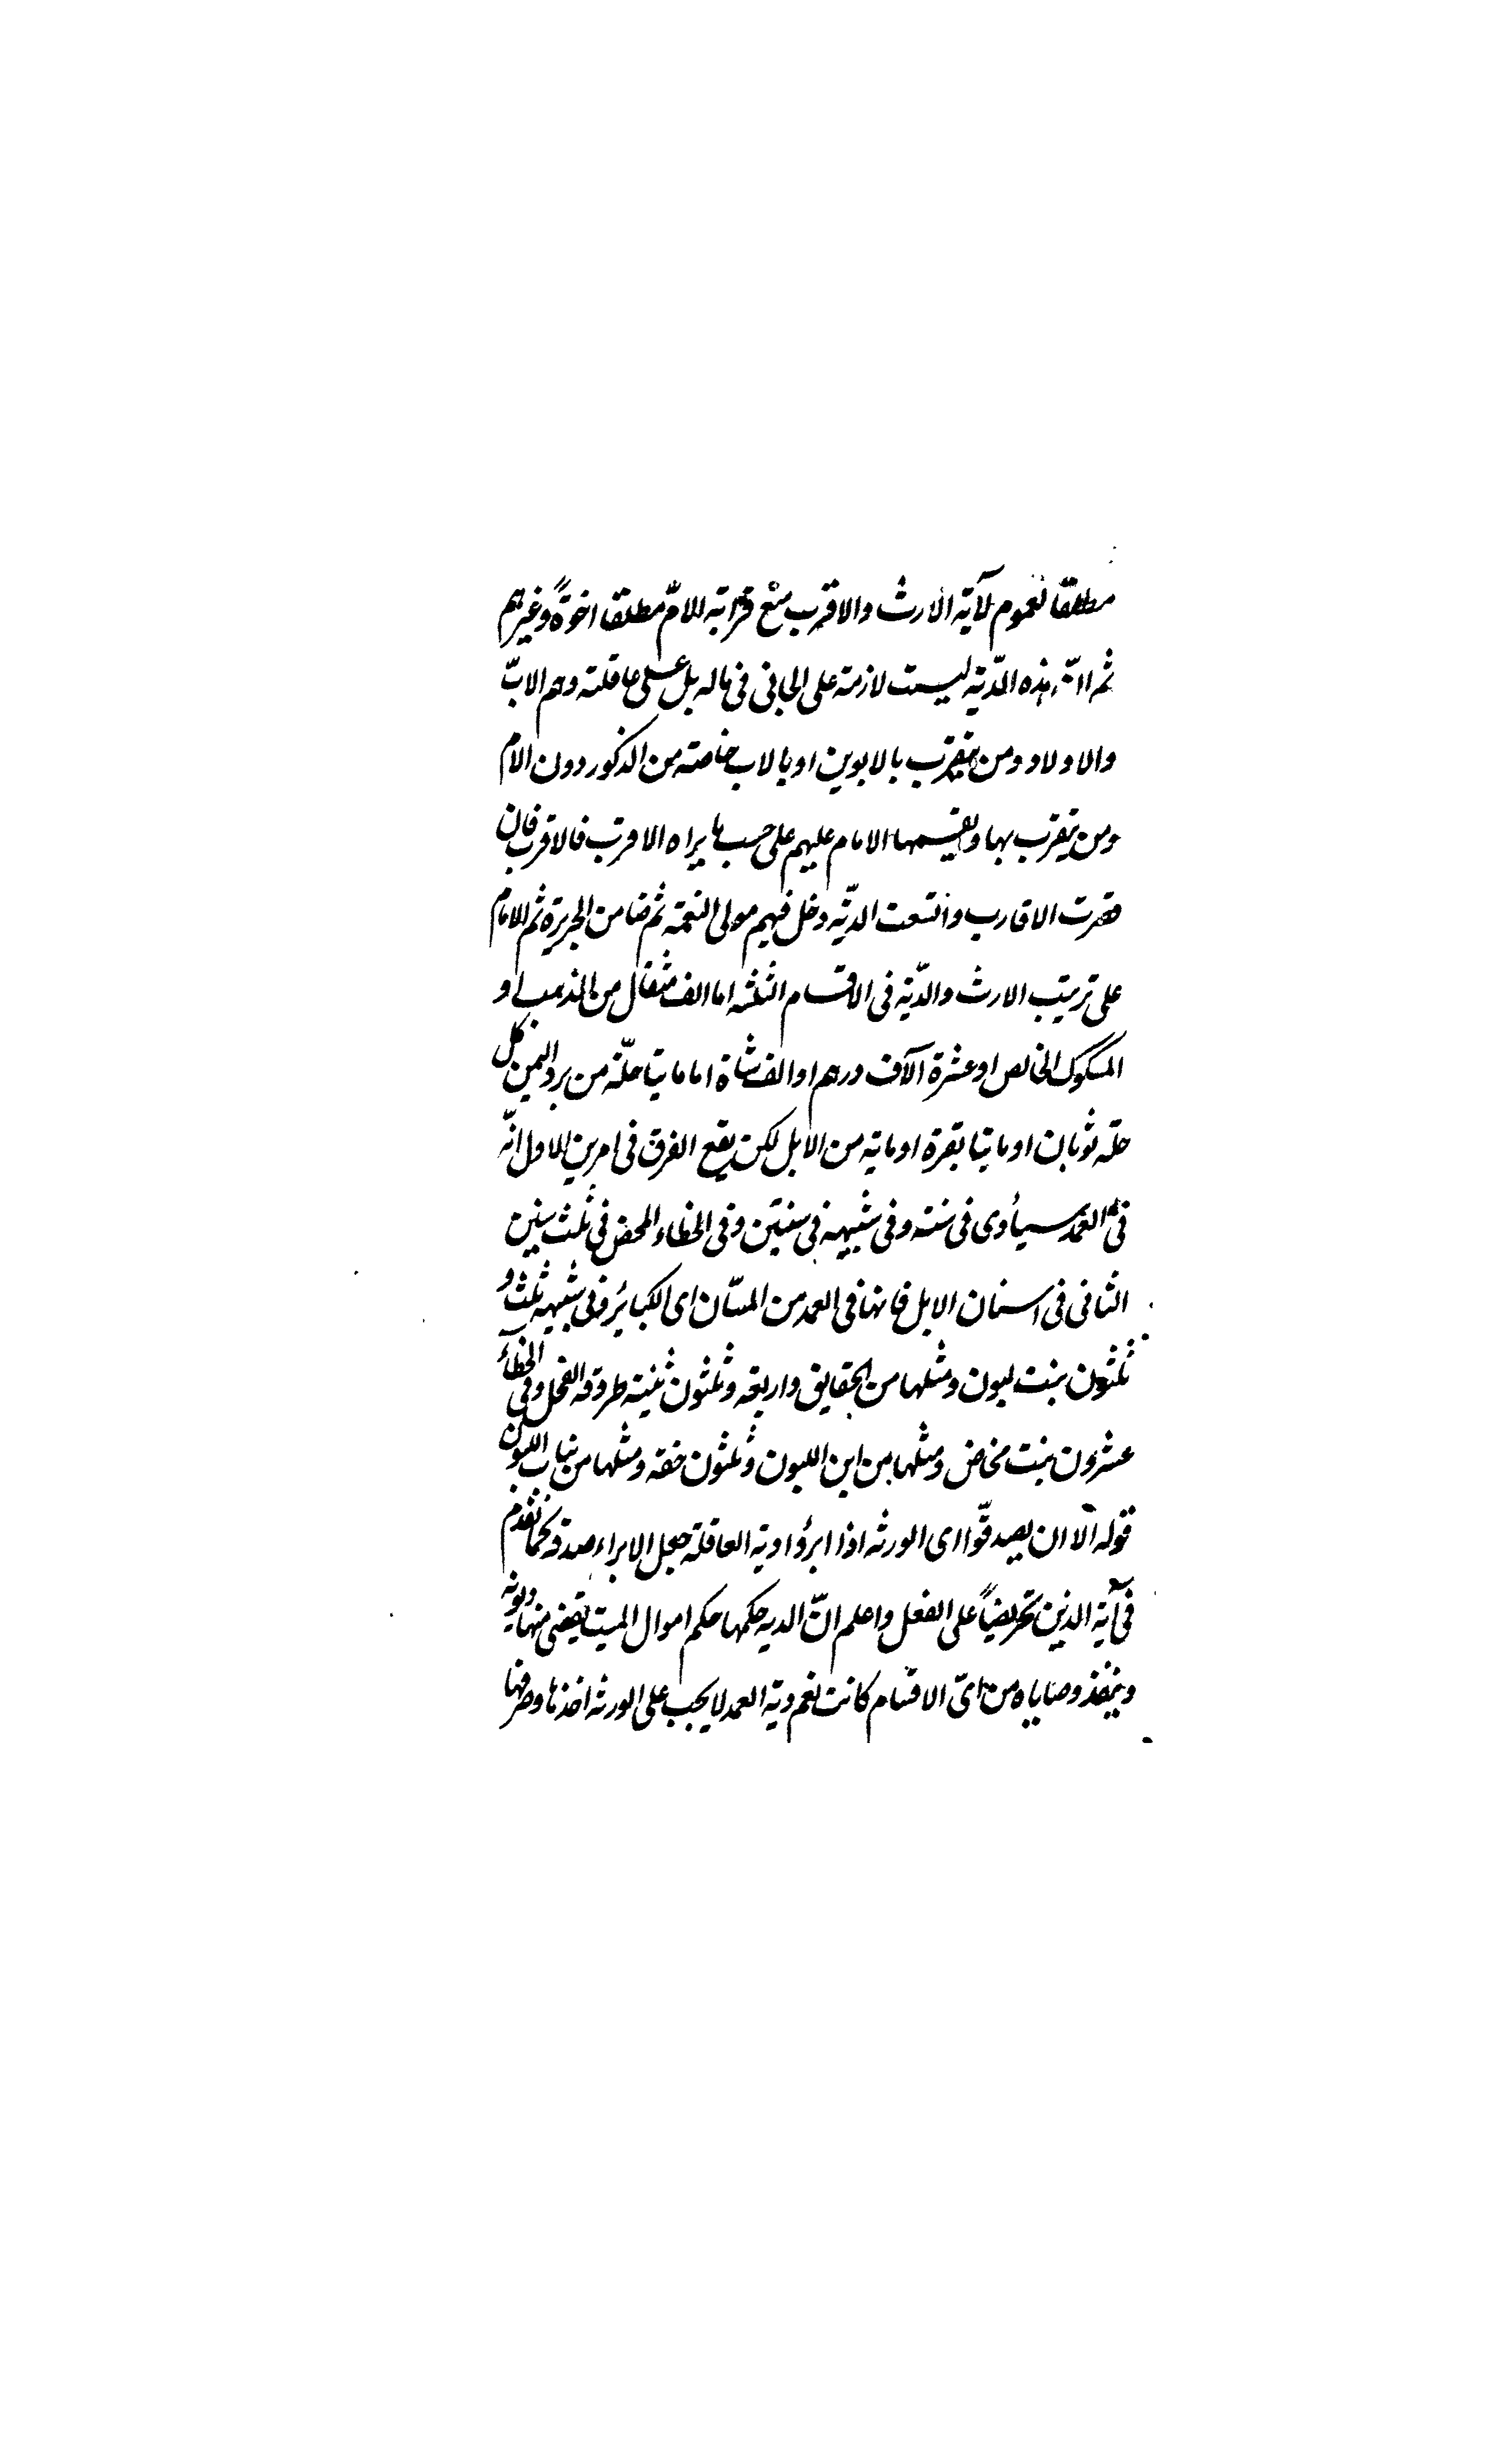 مطلقا لعموم لآية الارث والاقرب منع قرابة للامّ مطلقا اخوةً وغيرهم
ثم انّ هذه الدّية ليست لازمة على الجانى فى ماله بل على عاقلته وهم الابّ
والاولاد ومن يتقرب بالابوين او بالاب خاصة من الذكور دون الام
ومن يتقرب بها ويقسمها الامام عليهم على حسب ما يراه الاقرب فالاقرب فان
قصرت الاقارب واتسعت الديّة دخل فيهم مولى النعمة ثم ضامن الجريرة ثم الامام
على ترتيب الارث والدّية فى الاقسام الثلثة اما الف مثقال من الذهب او
المسكوك الخالص او عشرة آلاف درهم او الف شاة اما ماتيا حلّة من برد اليمن كل
حلّة ثوبان او ماتيا بقرة او ماية من الابل لكن يقع الفرق فى امرين الاول انّه
فى العمد يسأدى فى سنة وفى شبيهه فى سنتين وفى الخطاء المحض فى ثلث سنين
الثانى فى اسنان الابل فانها فى العمد من المسّان اى الكبائر وفى شبيهه ثلث و
ثلثون بنت لبون ومثلها من الحقايق واربعة وثلثون ثنية طروقة الفحل وفى الخطأ
عشرون بنت مخاض ومثلها من ابن اللبون وثلثون حقه ومثلها من بنات اللبون
قوله الّا ان يصدقّوا اى الورثه اذا ابرؤا دية العاقلة جعل الابراء صدقه كما تقدم
فى آية الدين تحريضاً على الفعل واعلم انّ الديه حكمها حكم اموال الميت يقضى منها ديونه
وينفذ وصاياه من اىّ الاقسام كانت نعم دية العمد لا يجب على الورثه اخذها وصرفها